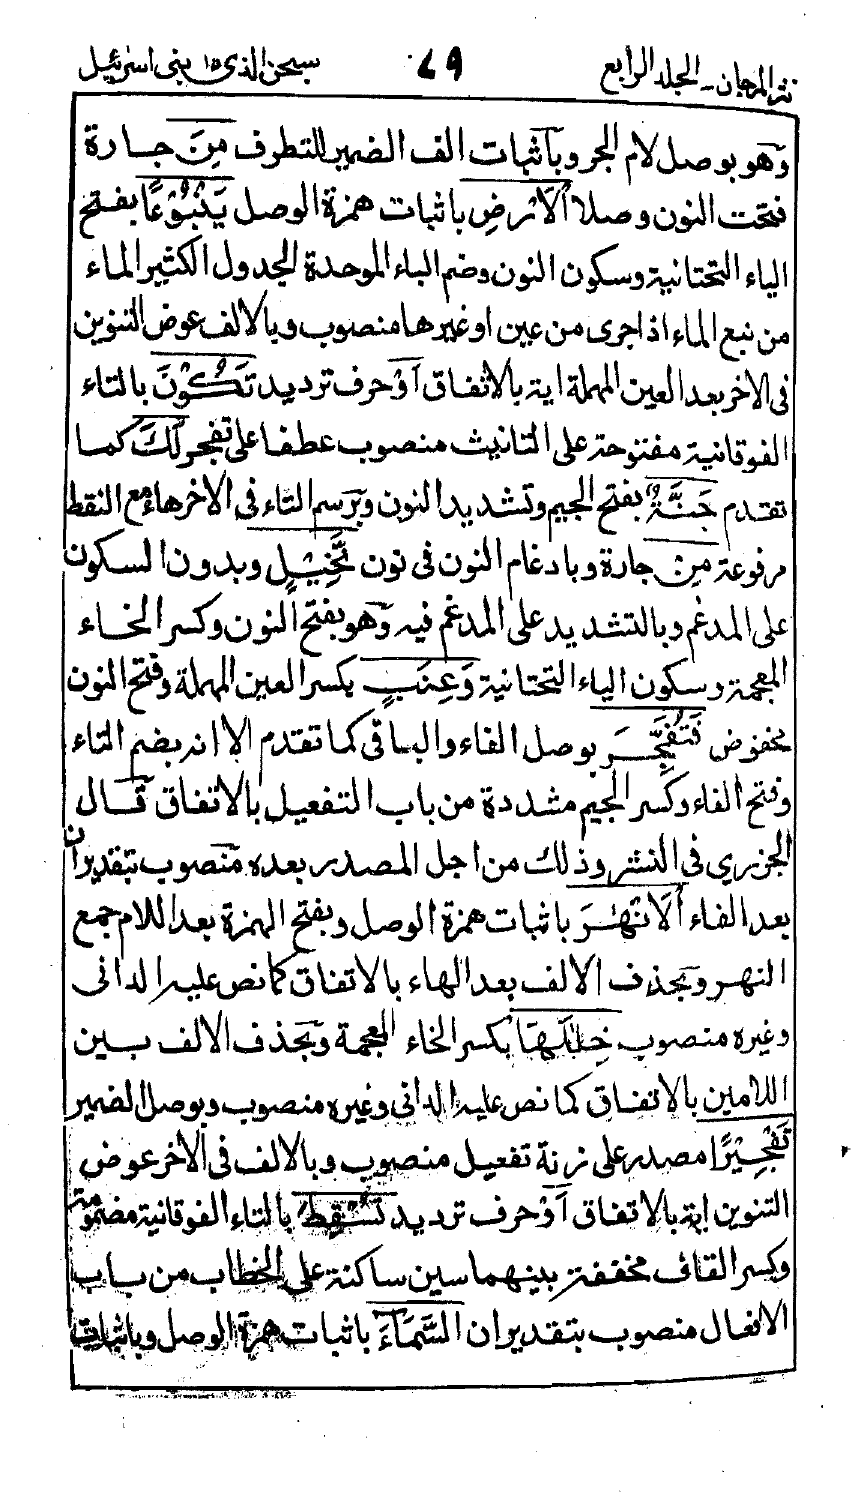 نثر المرجان ـ الجلد الرابع ٤٩ سبحن الذى ١٥ بنى اسرئيل
وَهو بوصل لام الجر وبآثبات الف الضمير للتطرف مِنَ جارة
فتحت النون وصلا اُلْاَرْضِ باثبات همزة الوصل يَنْۢبُوْعًا بفتح
الياء التحتانية وسكون النون وضم الباء الموحدة الجدول الكثير الماء
من نبع الماء اذا جرى من عين او غيرها منصوب وبالالف عوض التنوين
فى الاخر بعد العين المهملة اية بالاتفاق اَوْ حرف ترديد تَكُوْنَ بالتاء
الفوقانية مفتوحة على التانيث منصوب عطفا على تفجر لَكَ كما
تقدم جَنَّةٌ بفتح الجيم وتشديد النون وبرسم التاء فى الاخر هاء مع النقط
مرفوعة مِنْ جارة وبادغام النون فى نون نَّخِيْلٍ وبدون السكون
على المدغم وبالتشديد على المدغم فيه وَهو بفتح النون وكسر الخاء
المعجمة وسكون الياء التحتانية وَعِنَبٍ بكسر العين المهملة وفتح النون
مخفوض فَتُفَجِّرَ بوصل الفاء والباقى كما تقدم الا انه بضم التاء
وفتح الفاء وكسر الجيم مشددة من باب التفعيل بالاتفاق قَال
الجزري فى النشر وذلك من اجل المصدر بعده منصوب بتقديران
بعد الفاء اُلْاَنْهٰرَ باثبات همزة الوصل وبفتح الهمزة بعد اللام جمع
النهر وبحذف الالف بعد الهاء بالاتفاق كما نص عليه الدانى
وغيره منصوب خِلٰلَهَا بكسر الخاء المعجمة وبحذف الالف بين
اللامين بالاتفاق كما نص عليه الدانى وغيره منصوب وبوصل الضمير
تَفْجِيْرًا مصدر على زنة تفعيل منصوب وبالالف فى الاخر عوض
التنوين اية بالاتفاق اَوْ حرف ترديد تُسْقِطَ بالتاء الفوقانية مضمومة
وكسر القاف مخففة بينهما سين ساكنة على الخطاب من باب
الافعال منصوب بتقدير ان السَّمَآءَ باثبات همزة الوصل وباثبات